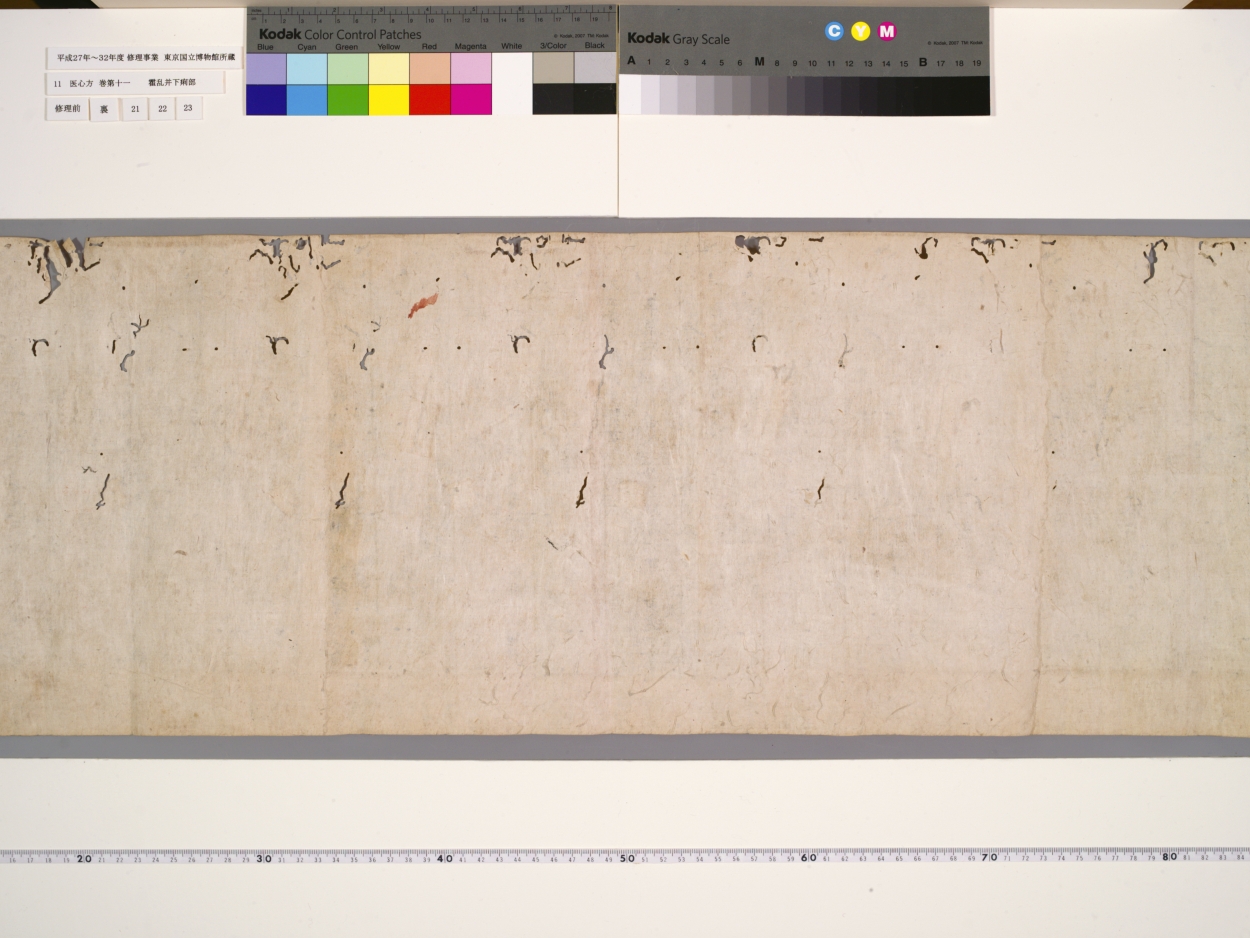 平成27年～32年度 修理事業 東京国立博物館所蔵
11 医心方 巻第十一 霍乱并下痢部
修理前 裏 21 22 23
Kodak Color Control Patches
© Kodak, 2007 TM: Kodak
Blue Cyan Green Yellow Red Magenta White 3/Color Black
Kodak Gray Scale
C Y M
© Kodak, 2007 TM: Kodak
A 1 2 3 4 5 6 M 8 9 10 11 12 13 14 15 B 17 18 19
20 30 40 50 60 70 80